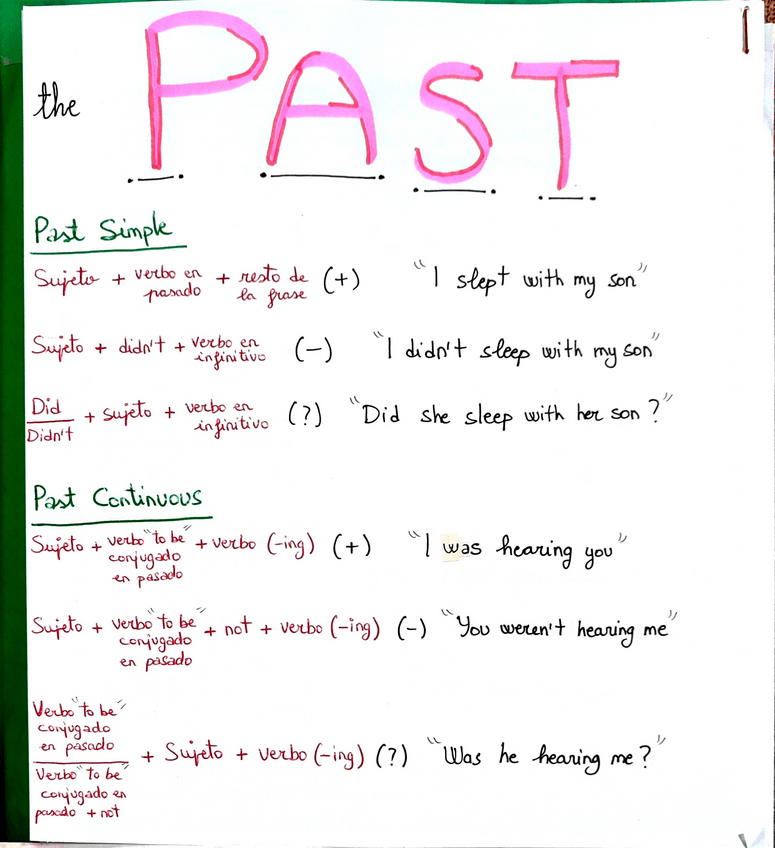 the PAST
Past Simple
Sujeto + verbo en pasado + resto de la frase (+) "I slept with my son"
Sujeto + didn't + verbo en infinitivo (-) "I didn't sleep with my son"
Did / Didn't + sujeto + verbo en infinitivo (?) "Did she sleep with her son?"
Past Continuous
Sujeto + verbo "to be" conjugado en pasado + verbo (-ing) (+) "I was hearing you"
Sujeto + verbo "to be" conjugado en pasado + not + verbo (-ing) (-) "You weren't hearing me"
Verbo "to be" conjugado en pasado / Verbo "to be" conjugado en pasado + not + Sujeto + verbo (-ing) (?) "Was he hearing me?"